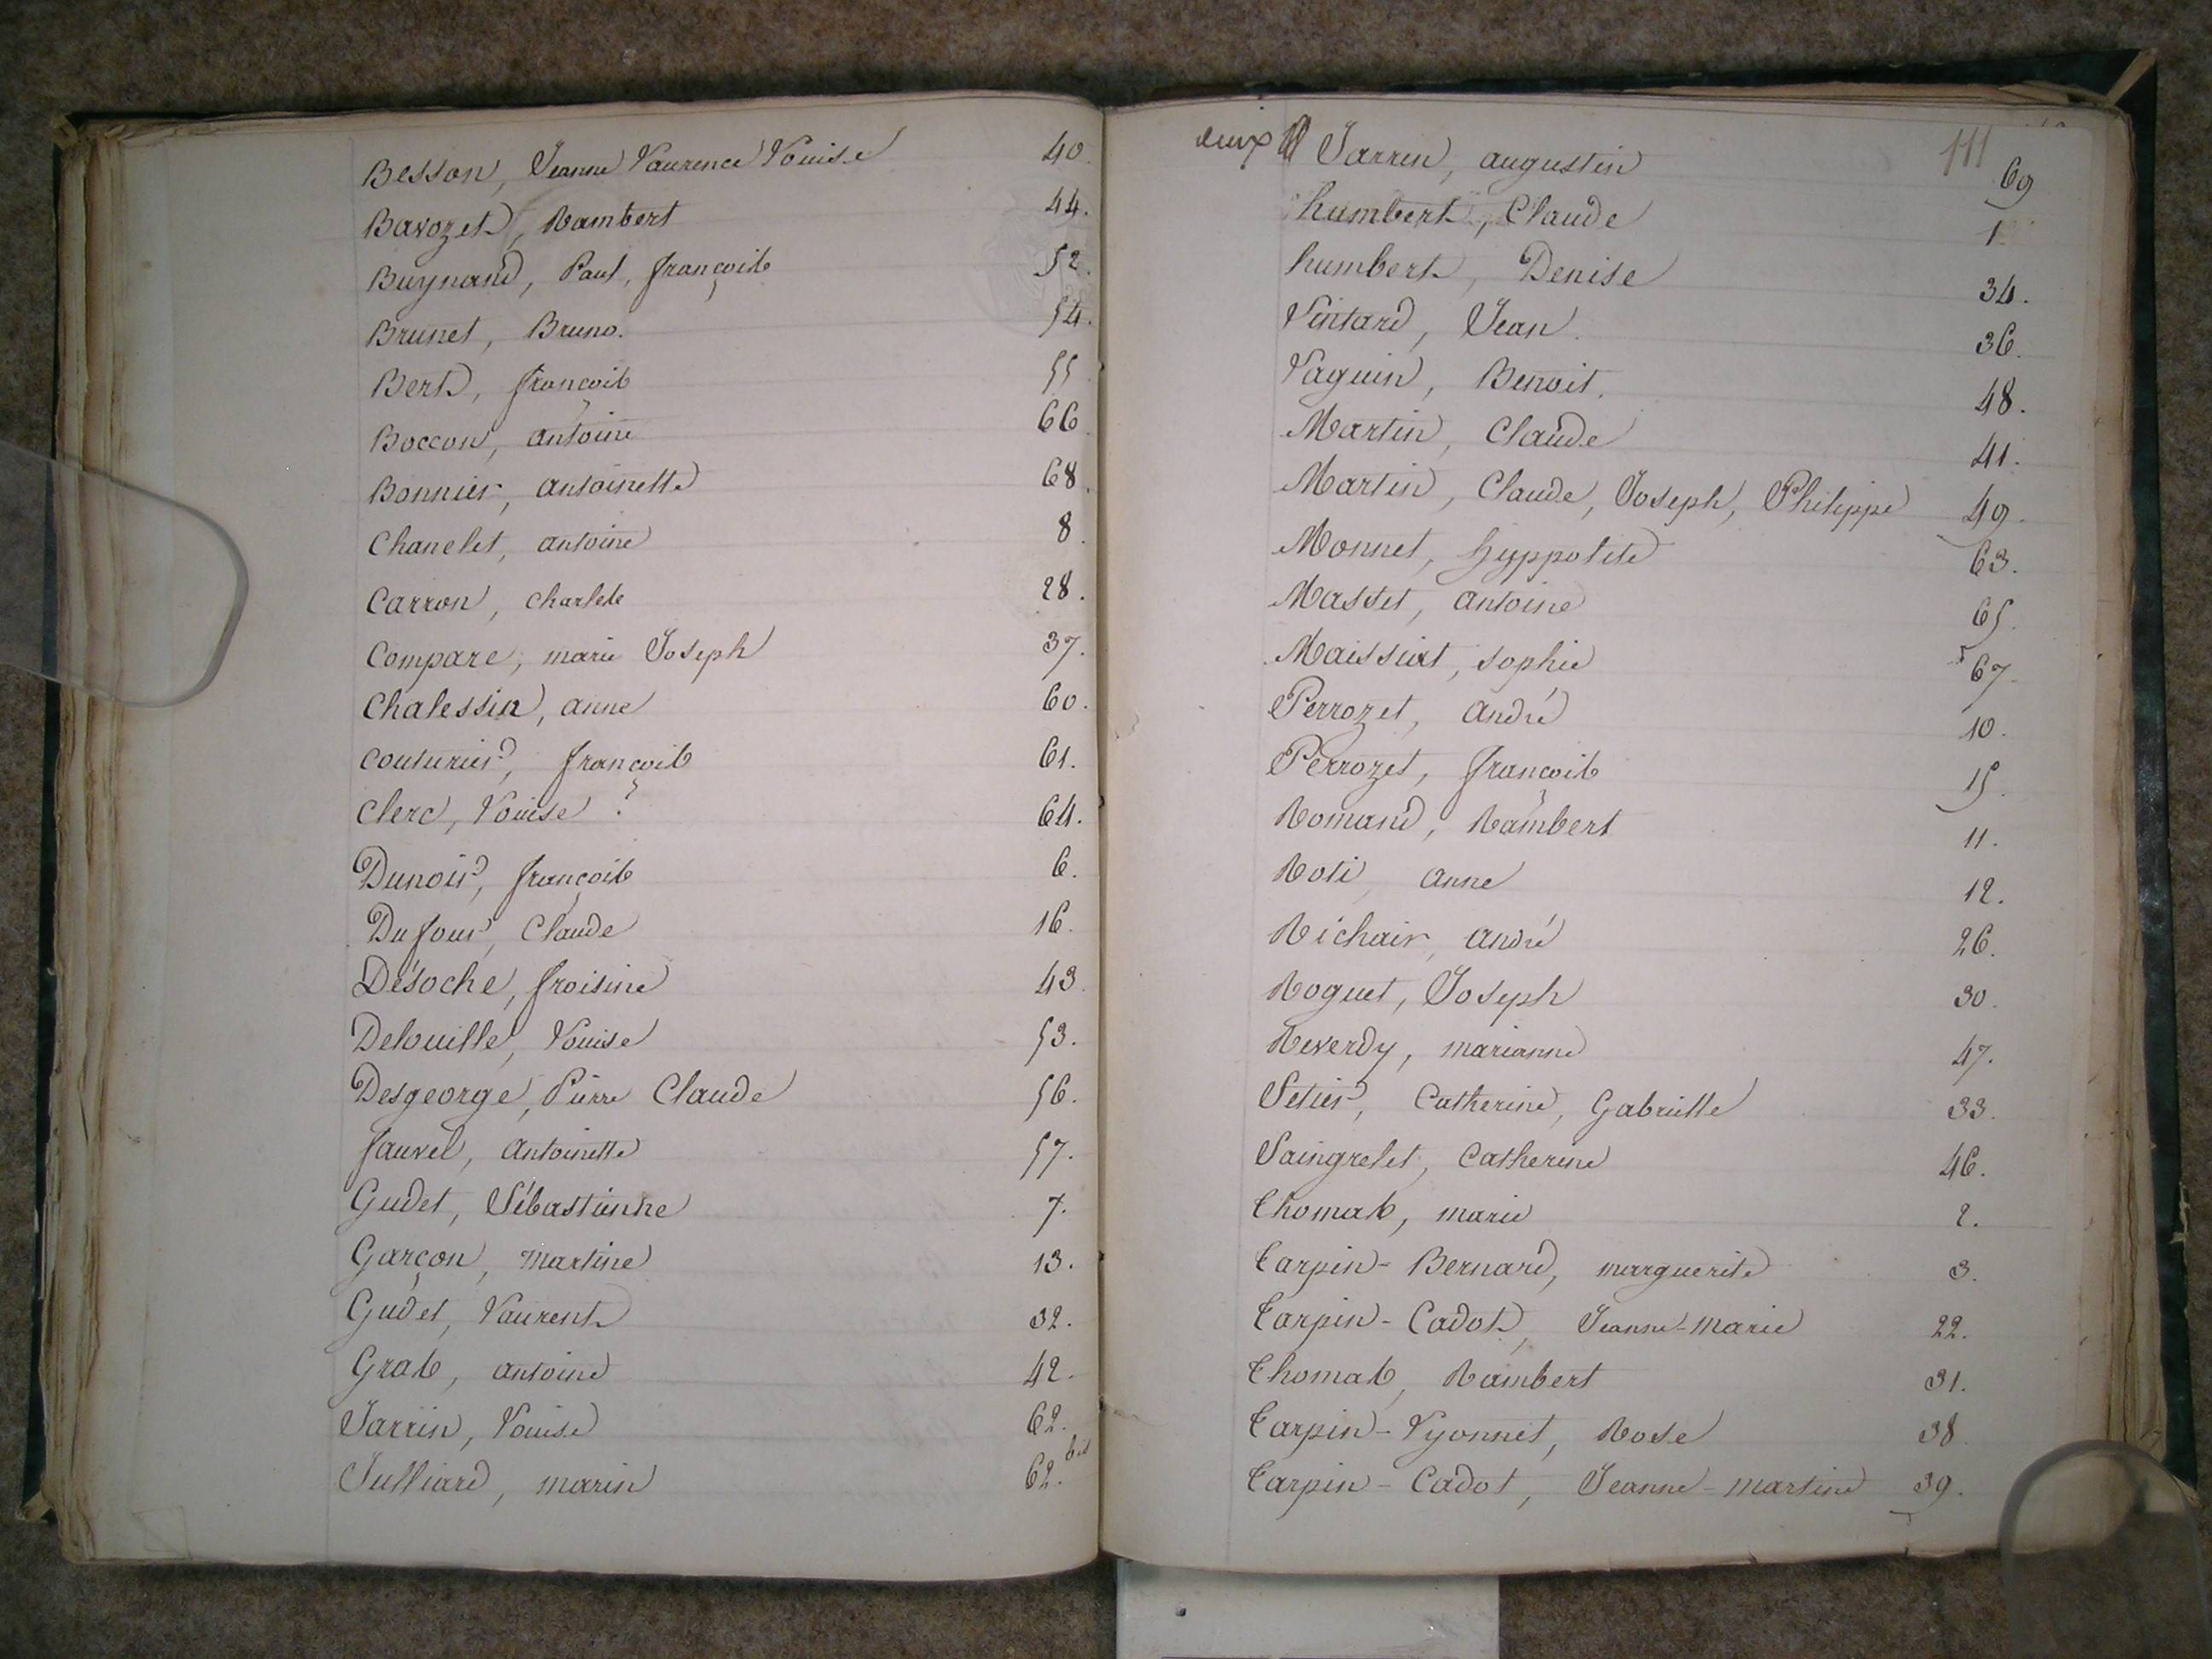 Besson, Jeanne Laurence Louise 40.
Bavozet, Rambert 44.
Buynand, Paul, françois 52.
Brunet, Bruno. 54.
Bert, françois 55
Boccon, antoine 66
Bonnier, antoinette 68.
Chanelet, antoine 8.
Carron, charles 28.
Compare, marie Joseph 37.
Chalessin, anne 60.
Couturier, françois 61.
Clerc, Louise 64.
Dunoir, françois 6.
Dufour, Claude 16.
Désoche, froisine 43.
Delouille, Louise 53.
Desgeorge, Pierre Claude 56.
fauvel, antoinette 57.
Gudet, Sébastienne 7.
Garçon, martine 13.
Gudet, Laurent 32.
Gras, antoine 42.
Jarrin, Louise 62.
Julliard, marin 62. bis
deux Jarrin, augustin 69
111
humbert, Claude 1
humbert, Denise 34.
Lintard, Jean. 36.
Laguin, Benoit. 48.
Martin, Claude 41.
Martin, Claude, Joseph, Philippe 49.
Monnet, hyppolite 63.
Masset, antoine 65.
Maissiat, sophie 67.
Perrozet, andré 10.
Perrozet, françois 15.
Romand, Rambert 11.
Roti, anne 12.
Richair, andré 26.
Roguet, Joseph 30.
Reverdy, marianne 47.
Setier, Catherine, Gabrielle 33.
Saingrelet, Catherine 46.
Thomas, marie 2.
Tarpin-Bernard, marguerite 3.
Tarpin-Cadot, Jeanne-marie 22.
Thomas, Rambert 31.
Tarpin-Lyonnet, Rose 38
Tarpin-Cadot, Jeanne-martine 39.